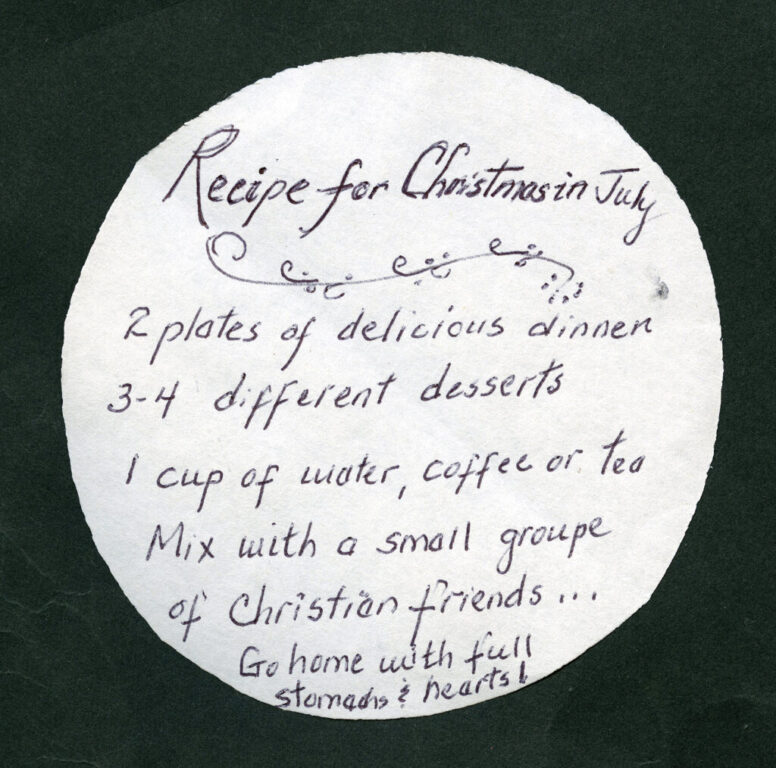 Recipe for Christmas in July
2 plates of delicious dinner
3-4 different desserts
1 cup of water, coffee or tea
Mix with a small groupe
of Christian friends...
Go home with full
stomachs & hearts!